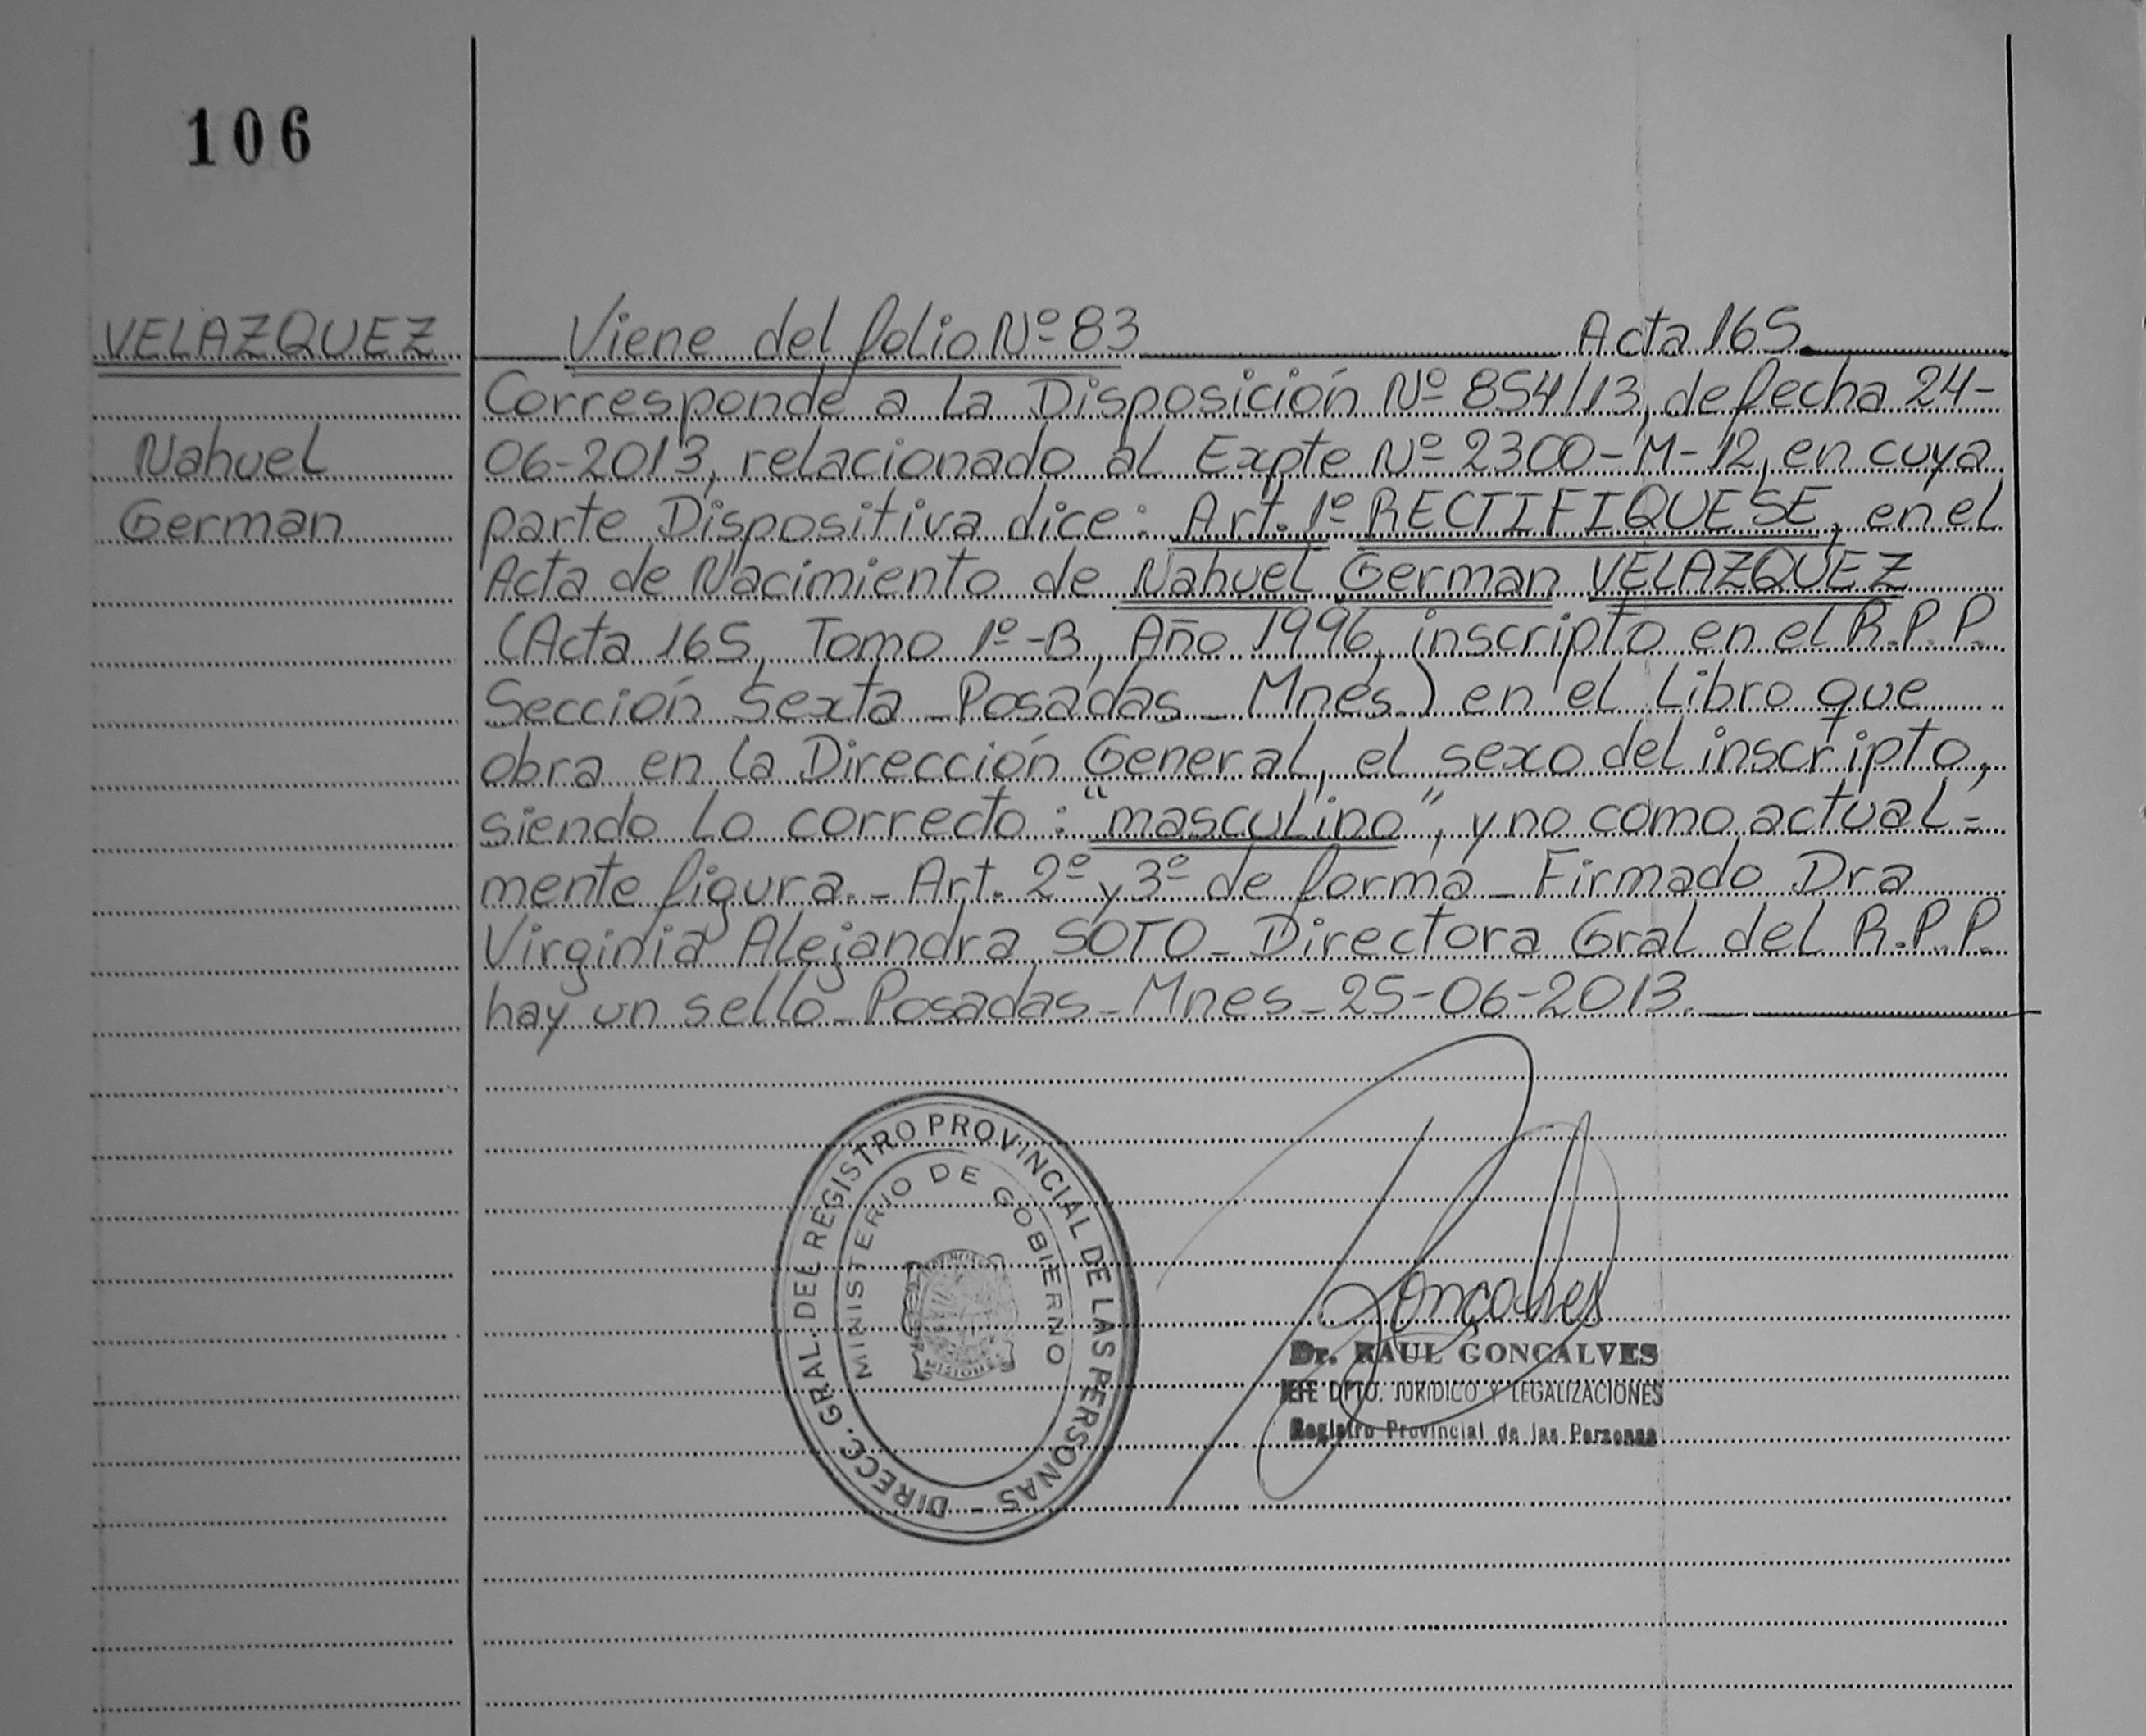 106
VELAZQUEZ
Nahuel
German
Viene del folio Nº 83 Acta 165.
Corresponde a la Disposición Nº 854/13, de fecha 24-
06-2013, relacionado al Expte Nº 2300-M-12, en cuya
parte Dispositiva dice: Art. 1º RECTIFIQUESE, en el
Acta de Nacimiento de Nahuel German VELAZQUEZ
(Acta 165, Tomo 1º-B, Año 1996, inscripto en el R.P.P.
Sección Sexta - Posadas - Mnes.) en el Libro que
obra en la Dirección General, el sexo del inscripto,
siendo lo correcto: "masculino", y no como actual=
mente figura.- Art. 2º y 3º de forma - Firmado Dra
Virginia Alejandra SOTO - Directora Gral del R.P.P.
hay un sello - Posadas - Mnes - 25-06-2013.
DIRECC. GRAL. DEL REGISTRO PROVINCIAL DE LAS PERSONAS -
MINISTERIO DE GOBIERNO
Goncalves
Dr. RAUL GONCALVES
JEFE DPTO. JURIDICO Y LEGALIZACIONES
Registro Provincial de las Personas